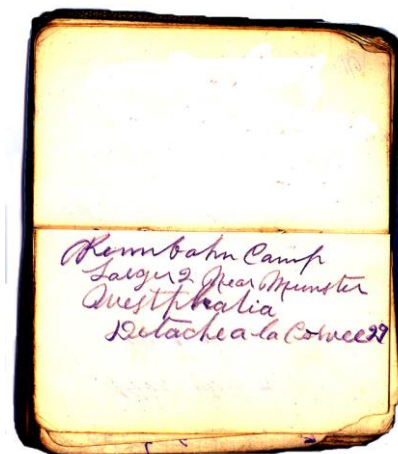 Rennbahn Camp
Laeger 2 Near Munster
Westphalia
Detache a la Corvee 29